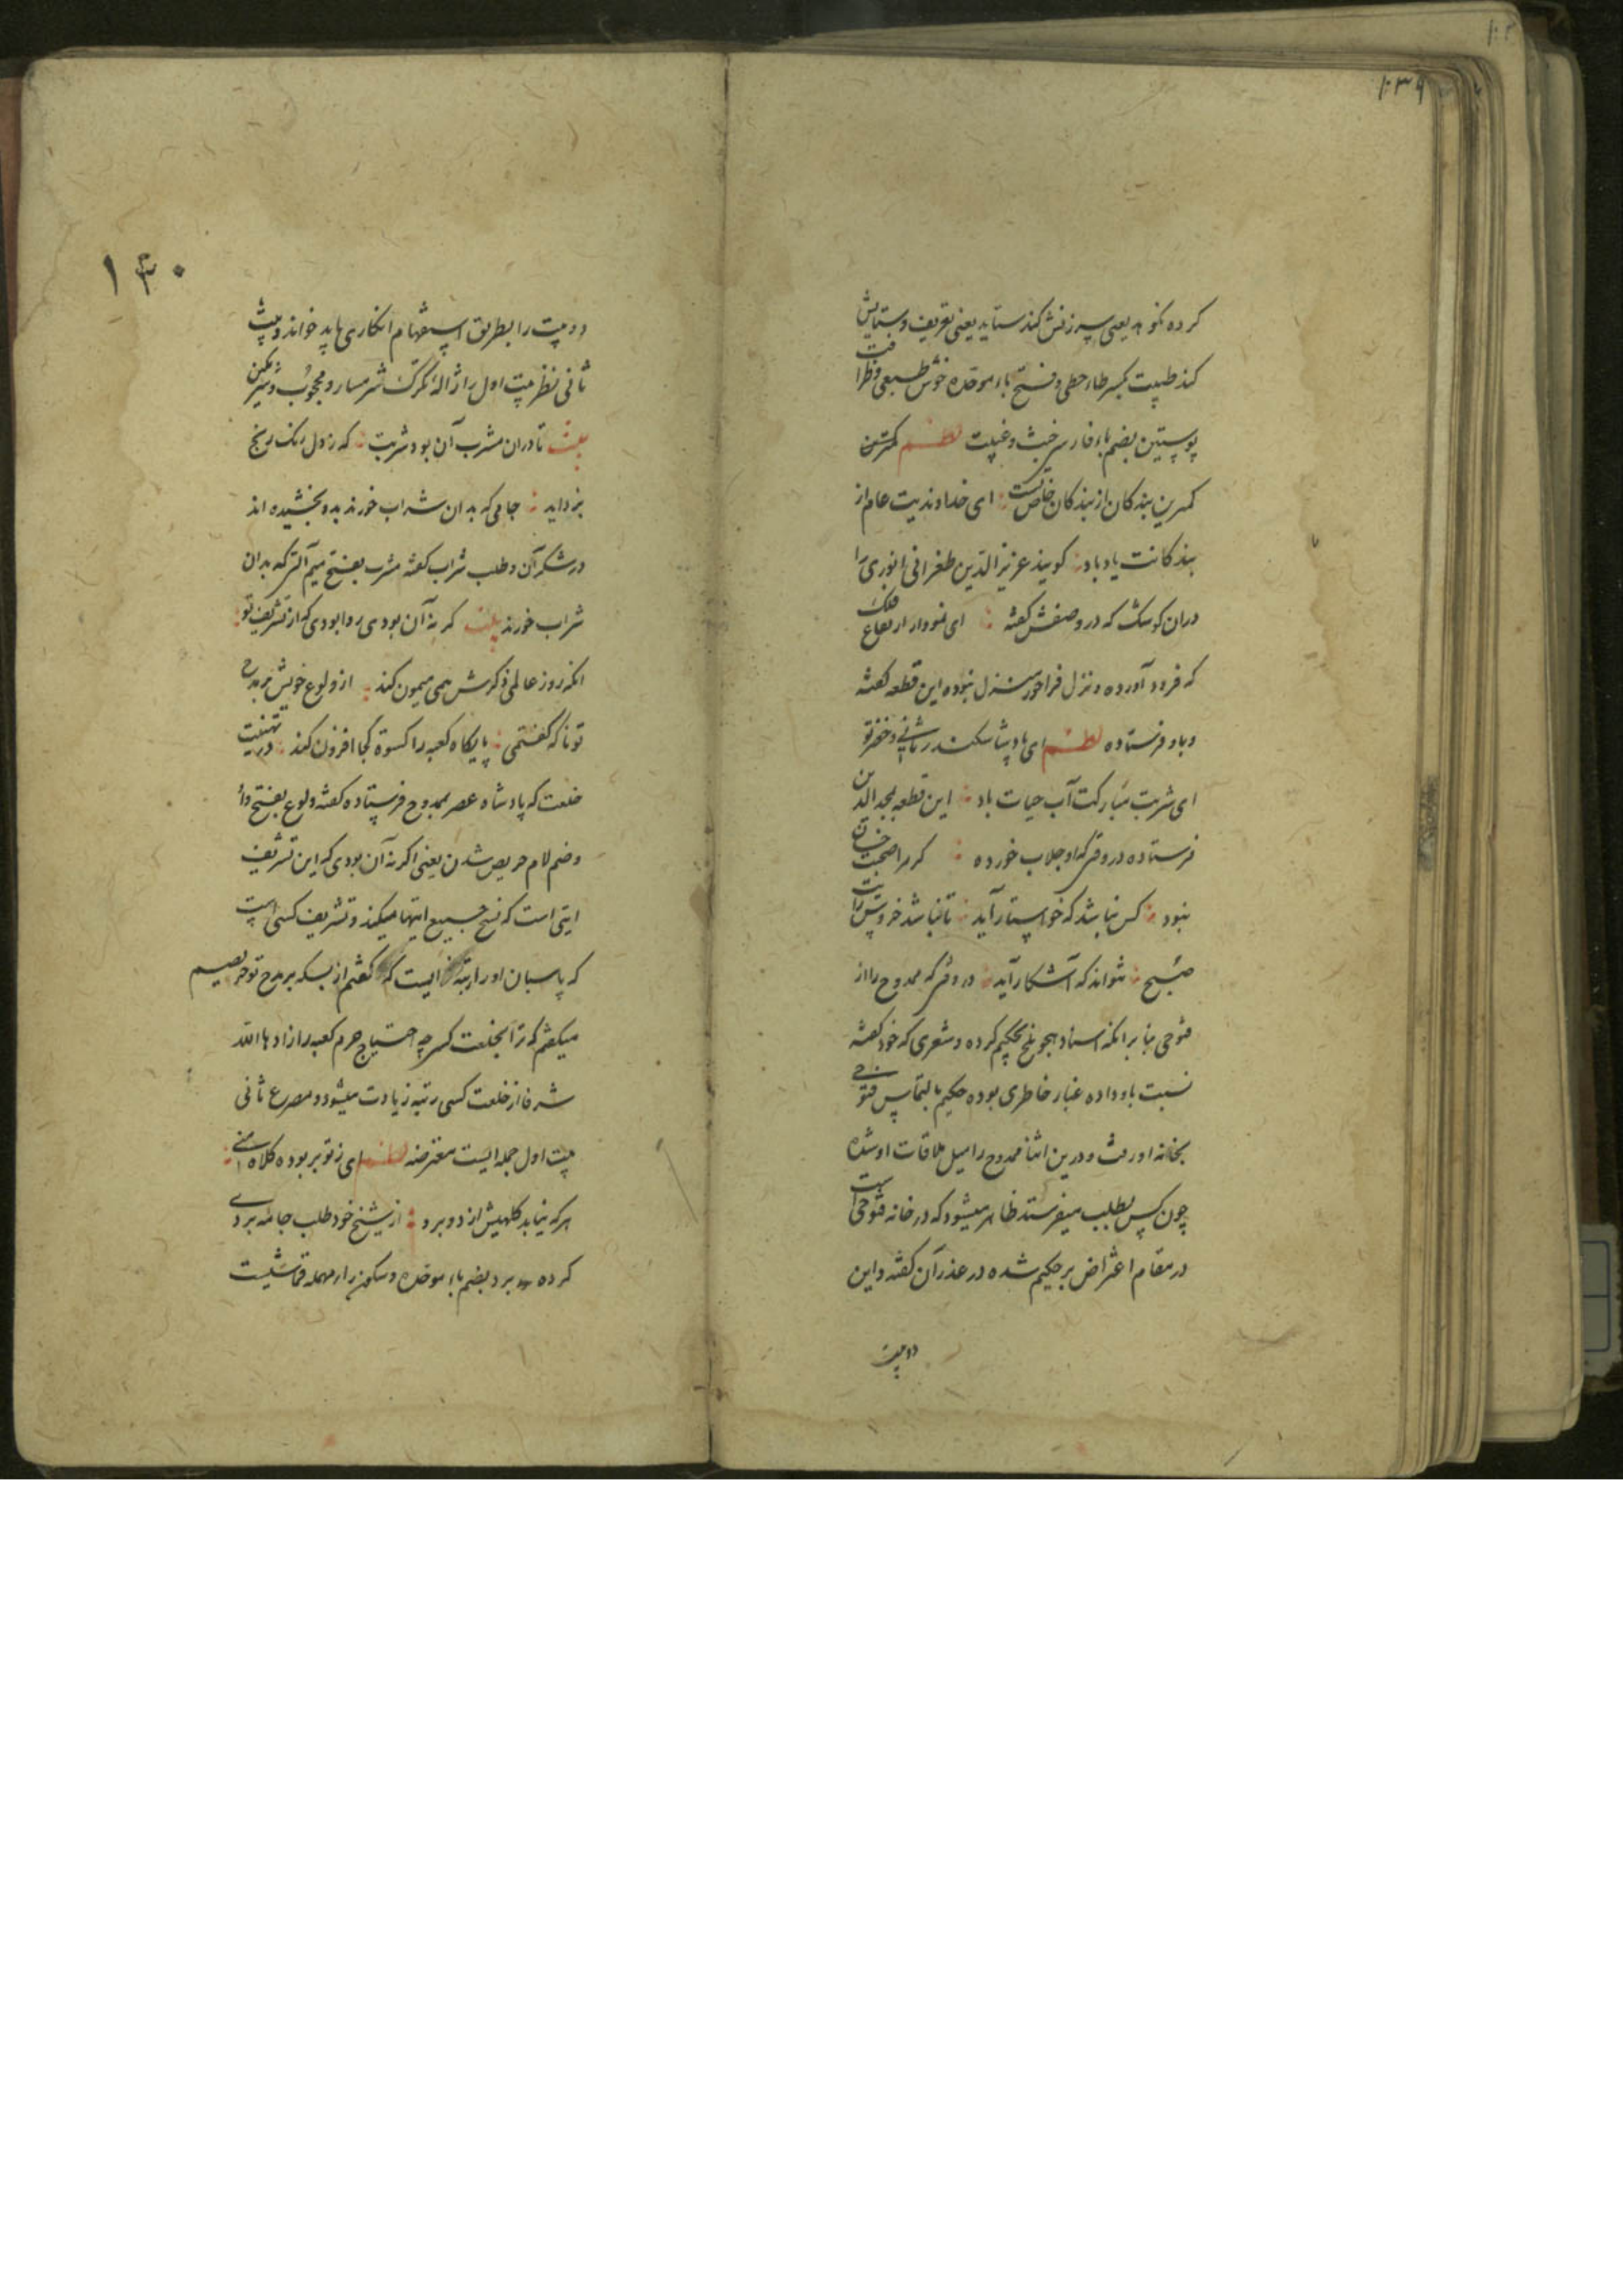 ۱۳۹
کرده نکوهد یعنی سرزنش کند ستاید یعنی تعریف و ستایش
کند طیبت بکسر طاء حطی و فتح باء موحده خوش طبعی و ظرافت
پوستین بضم باء فارسی خبث و غیبت نظم کمترین
کمترین بندکان از بندکان خاص تست ای خداوندیت عام از
بندکانت یاد باد کویند عزیز الدین طغرائی انوری را
دران کوشک که در وصفش کفته ای نمودار ارتفاع فلک
که فرود آورده و نزل فراخور منزل نبوده این قطعه کفته
و باو فرستاده نظم ای پادشا سکندر ثانی و خضر تو
ای شربت مبارکت آب حیات باد این قطعه بمجد الدین
فرستاده در وقتی که او جلاب خورده کر مرا صحبت
نبود کس نباشد که خواستار آید تا نباشد خروش رایت
صبح نتواند که آشکار آید در وقتی که ممدوح را از
فتوحی بنا بر انکه اسناد هجو بلخ بحکیم کرده و شعری که خود کفته
نسبت باو داده غبار خاطری بوده حکیم بالتماس فتوحی
بخانه او رفته و درین اثنا ممدوح را میل ملاقات او شده
چون کس بطلب میفرستد ظاهر میشود که در خانه فتوحی است
در مقام اعتراض بر حکیم شده در عذر آن کفته و این
دو بیت
۱۳۰
دو بیت را بطریق استفهام انکاری باید خواند و بیت
ثانی نظر ببیت اول را ژاله تکرک شرمسار و محجوب و شرمکین
بیت تا دران مشرب آن بود شربت که ز دل رنک رنج
بزداید جامی که بدان شراب خورند بدو بخشیده اند
در شکر آن و طلب شراب کفته مشرب بفتح میم آلتی که بدان
شراب خورند بیت کر نه آن بودی روا بودی که از تشریف تو
انکه روز عالمی ذکرش همی میمون کند از ولوع خویش بر مدح
تو ناکه کفتمی پایکاه کعبه را کسوة کجا افزون کند در تهنیت
خلعت که پادشاه عصر بممدوح فرستاده کفته ولوع بفتح واو
وضم لام حریص شدن یعنی اکر نه آن بودی که این تشریف
ایتی است که نسخ جمیع ایتها میکند و تشریف کسی است
که پاسبان او را رتبه ایست که کفتم از بسکه بر مدح تو حریصیم
میکفتم که ترا بخلعت کسی چه احتیاج حرم کعبه را زادها الله
شرفا از خلعت کسی رتبه زیادت میشود و مصرع ثانی
بیت اول جمله ایست معترضه نظم ای ز تو بر بوده کلاه منی
هر که نیاید کلهیش از دو برد از شیخ خود طلب جامه بردی
کرده برد بضم باء موحده و سکون راء مهمله قماشیست